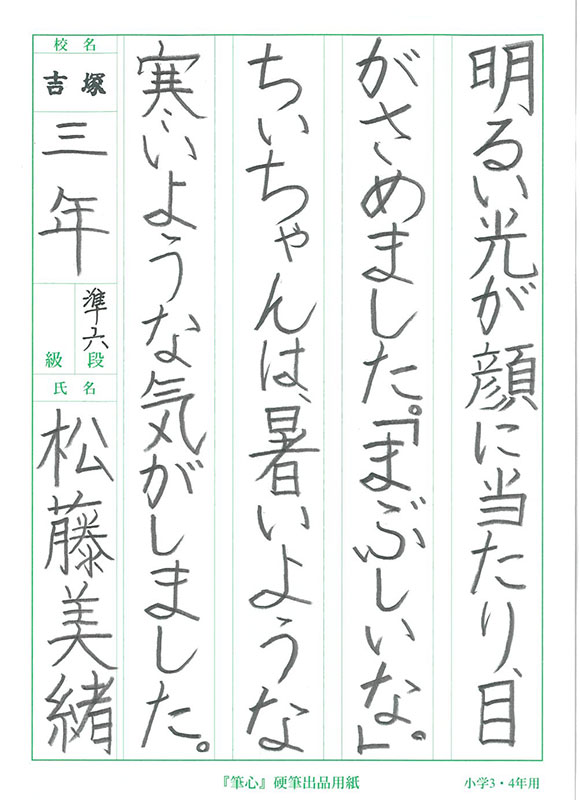 明るい光が顔に当たり、目
がさめました。「まぶしいな。」
ちいちゃんは、暑いような
寒いような気がしました。
校名
吉塚
三年
準六段
級
氏名
松藤美緒
『筆心』硬筆出品用紙
小学3・4年用